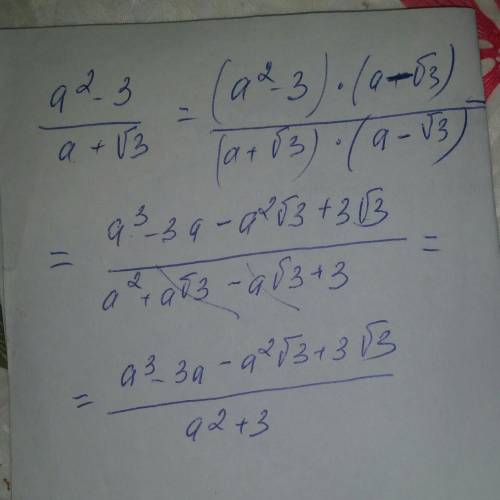 a² - 3 / a + √3 = (a² - 3) · (a - √3) / (a + √3) · (a - √3) =
= a³ - 3a - a²√3 + 3√3 / a² + a√3 - a√3 + 3 =
= a³ - 3a - a²√3 + 3√3 / a² + 3